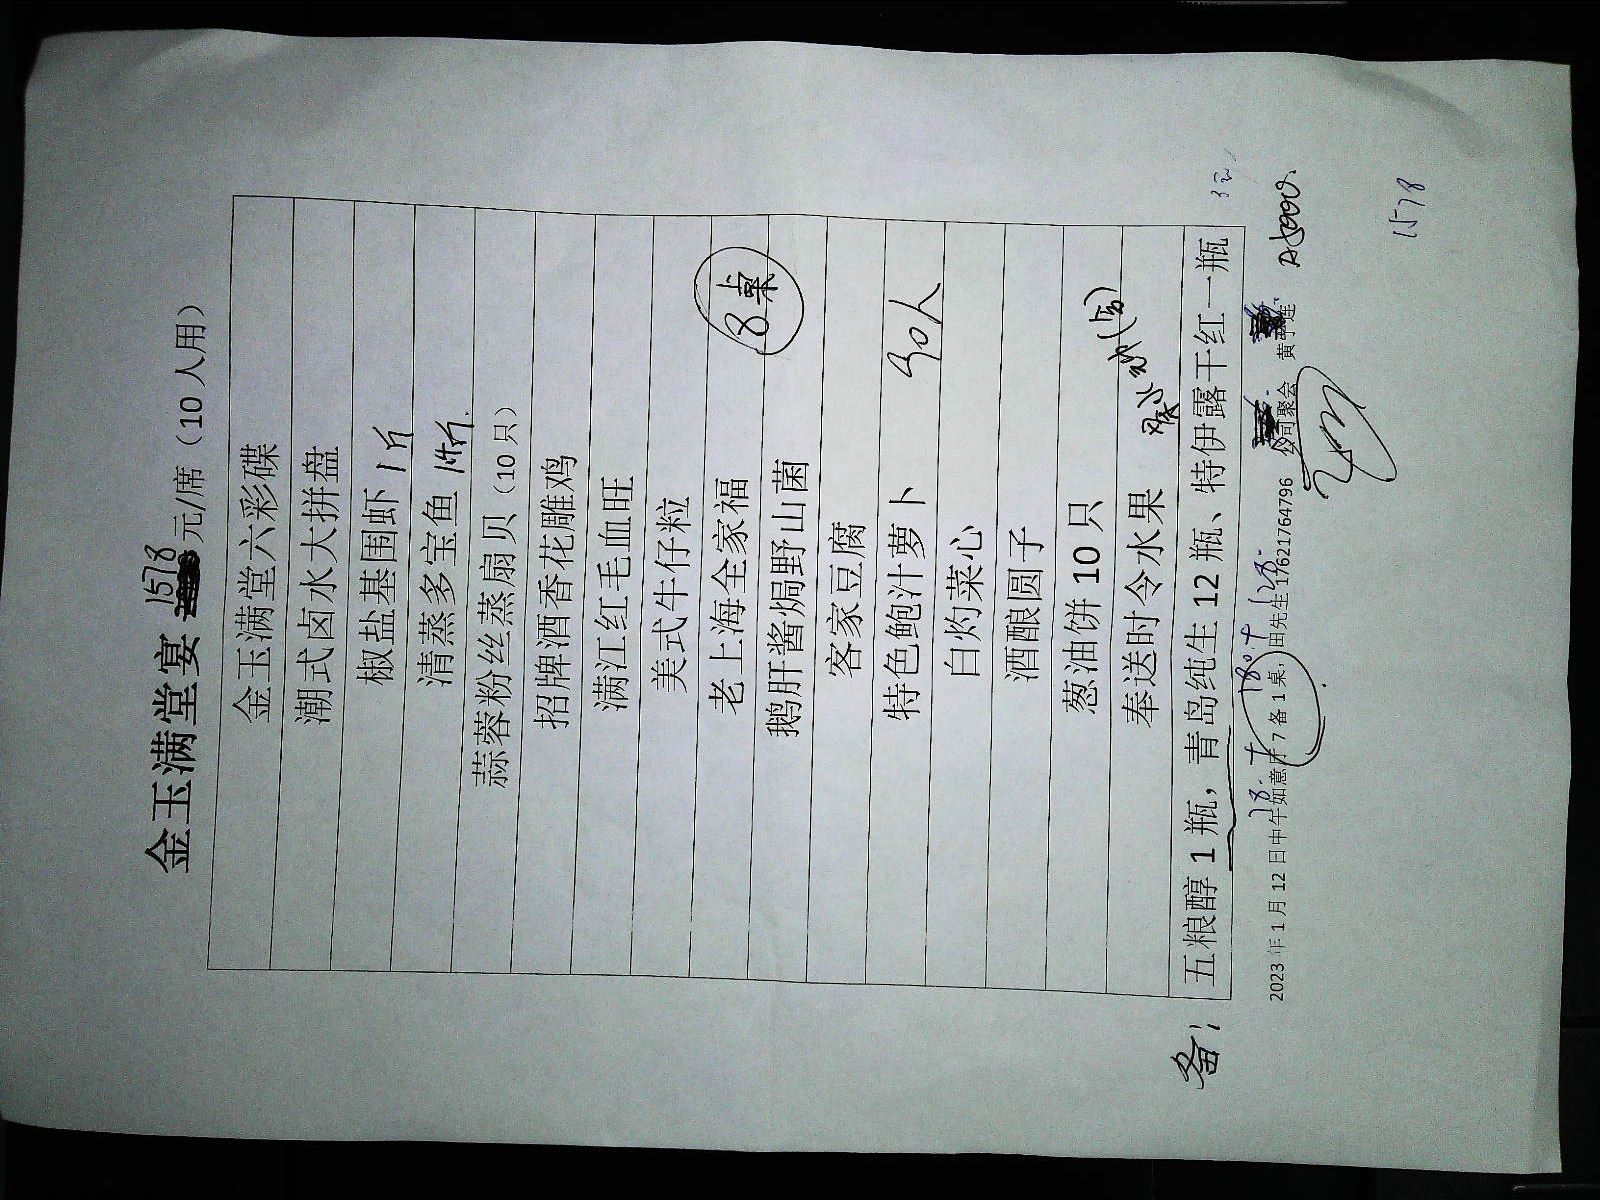 金玉满堂宴 1578 元/席（10 人用）
金玉满堂六彩碟
潮式卤水大拼盘
椒盐基围虾 1斤
清蒸多宝鱼
蒜蓉粉丝蒸扇贝（10 只）
招牌酒香花雕鸡
满江红毛血旺
美式牛仔粒
老上海全家福
8桌
鹅肝酱焗野山菌
客家豆腐
特色鲍汁萝卜
90人
白灼菜心
酒酿圆子
葱油饼 10 只
奉送时令水果
备:
五粮醇 1 瓶，青岛纯生 12 瓶、特伊露干红一瓶
28.+ 180.+ 128.
2023 年 1 月 12 日中午如意厅 7 备 1 桌，田先生 17621764796 公司聚会 黄
1578